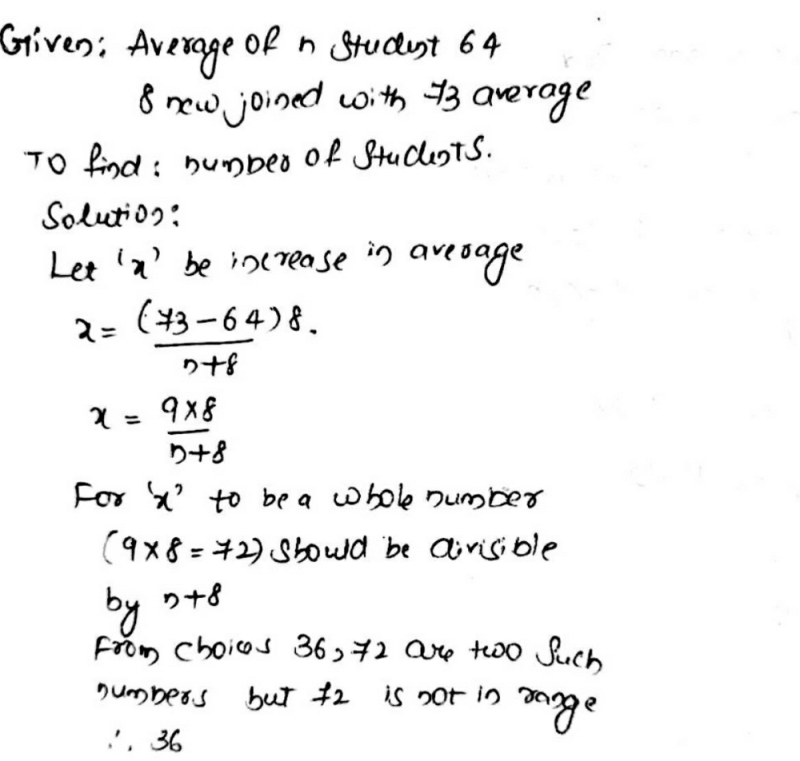 Given: Average of n student 64
8 new joined with 73 average
To find: number of students.
Solution:
Let 'x' be increase in average
x = (73-64)8.
n+8
x = 9×8
n+8
For 'x' to be a whole number
(9×8=72) should be divisible
by n+8
From choices 36,72 are two such
numbers but 72 is not in range
∴ 36